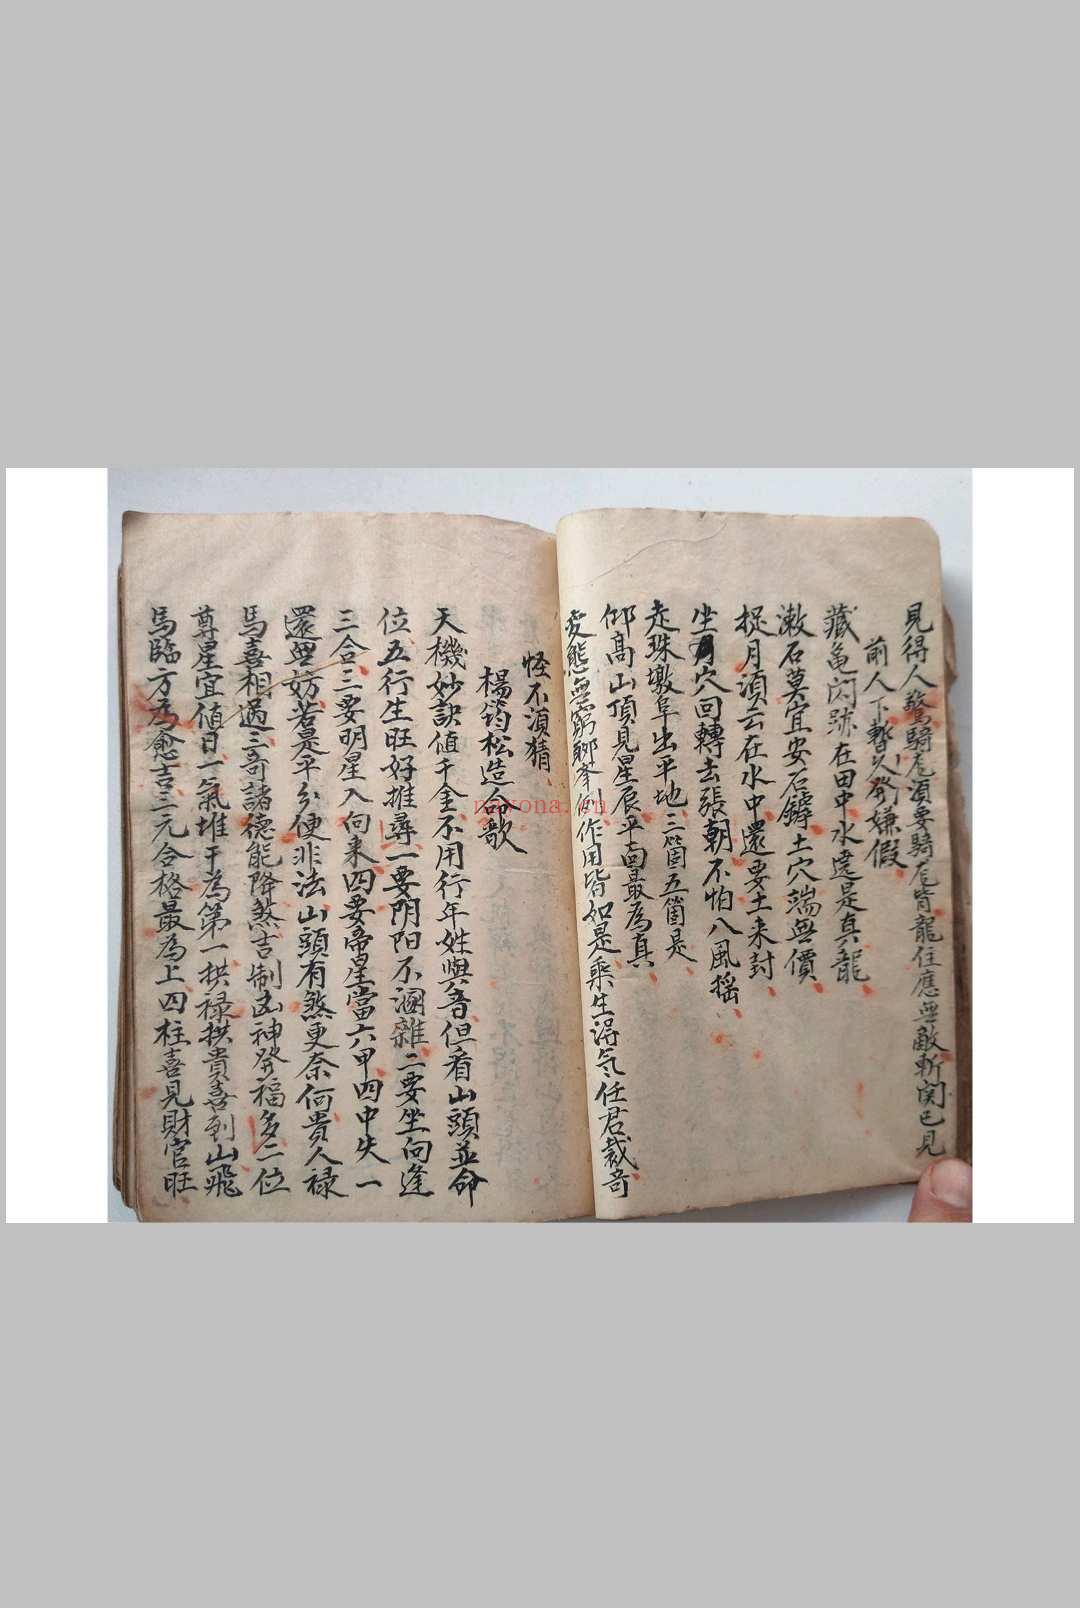 見得人驚騎危須要騎危背龍住應無敵斬関已見
前人下暫久發嫌假
藏亀閃跡在田中水遶是真龍
漱石莫宜安石罅土穴端無價
捉月須云在水中還要土来封
坐穴回轉去張朝不怕八風揺
走珠墩阜出平地三箇五箇是
仰高山頂見星辰平面最為真
変態無窮聊举例作用皆如是乘生淂気任君裁奇
怪不須猜
楊筠松造命歌
天機妙訣值千金不用行年姓與音但看山頭並命
位五行生旺好推尋一要阴阳不溷雜二要坐向逢
三合三要明星入向来四要帝星當六甲四中失一
還無妨若是平分便非法山頭有煞更奈何貴人禄
馬喜相遇三奇諸德能降煞吉制凶神發福多二位
尊星宜值日一氣堆干為第一拱禄拱貴喜到山飛
馬臨方為愈吉三元合格最為上四柱喜見財官旺
navona.cn